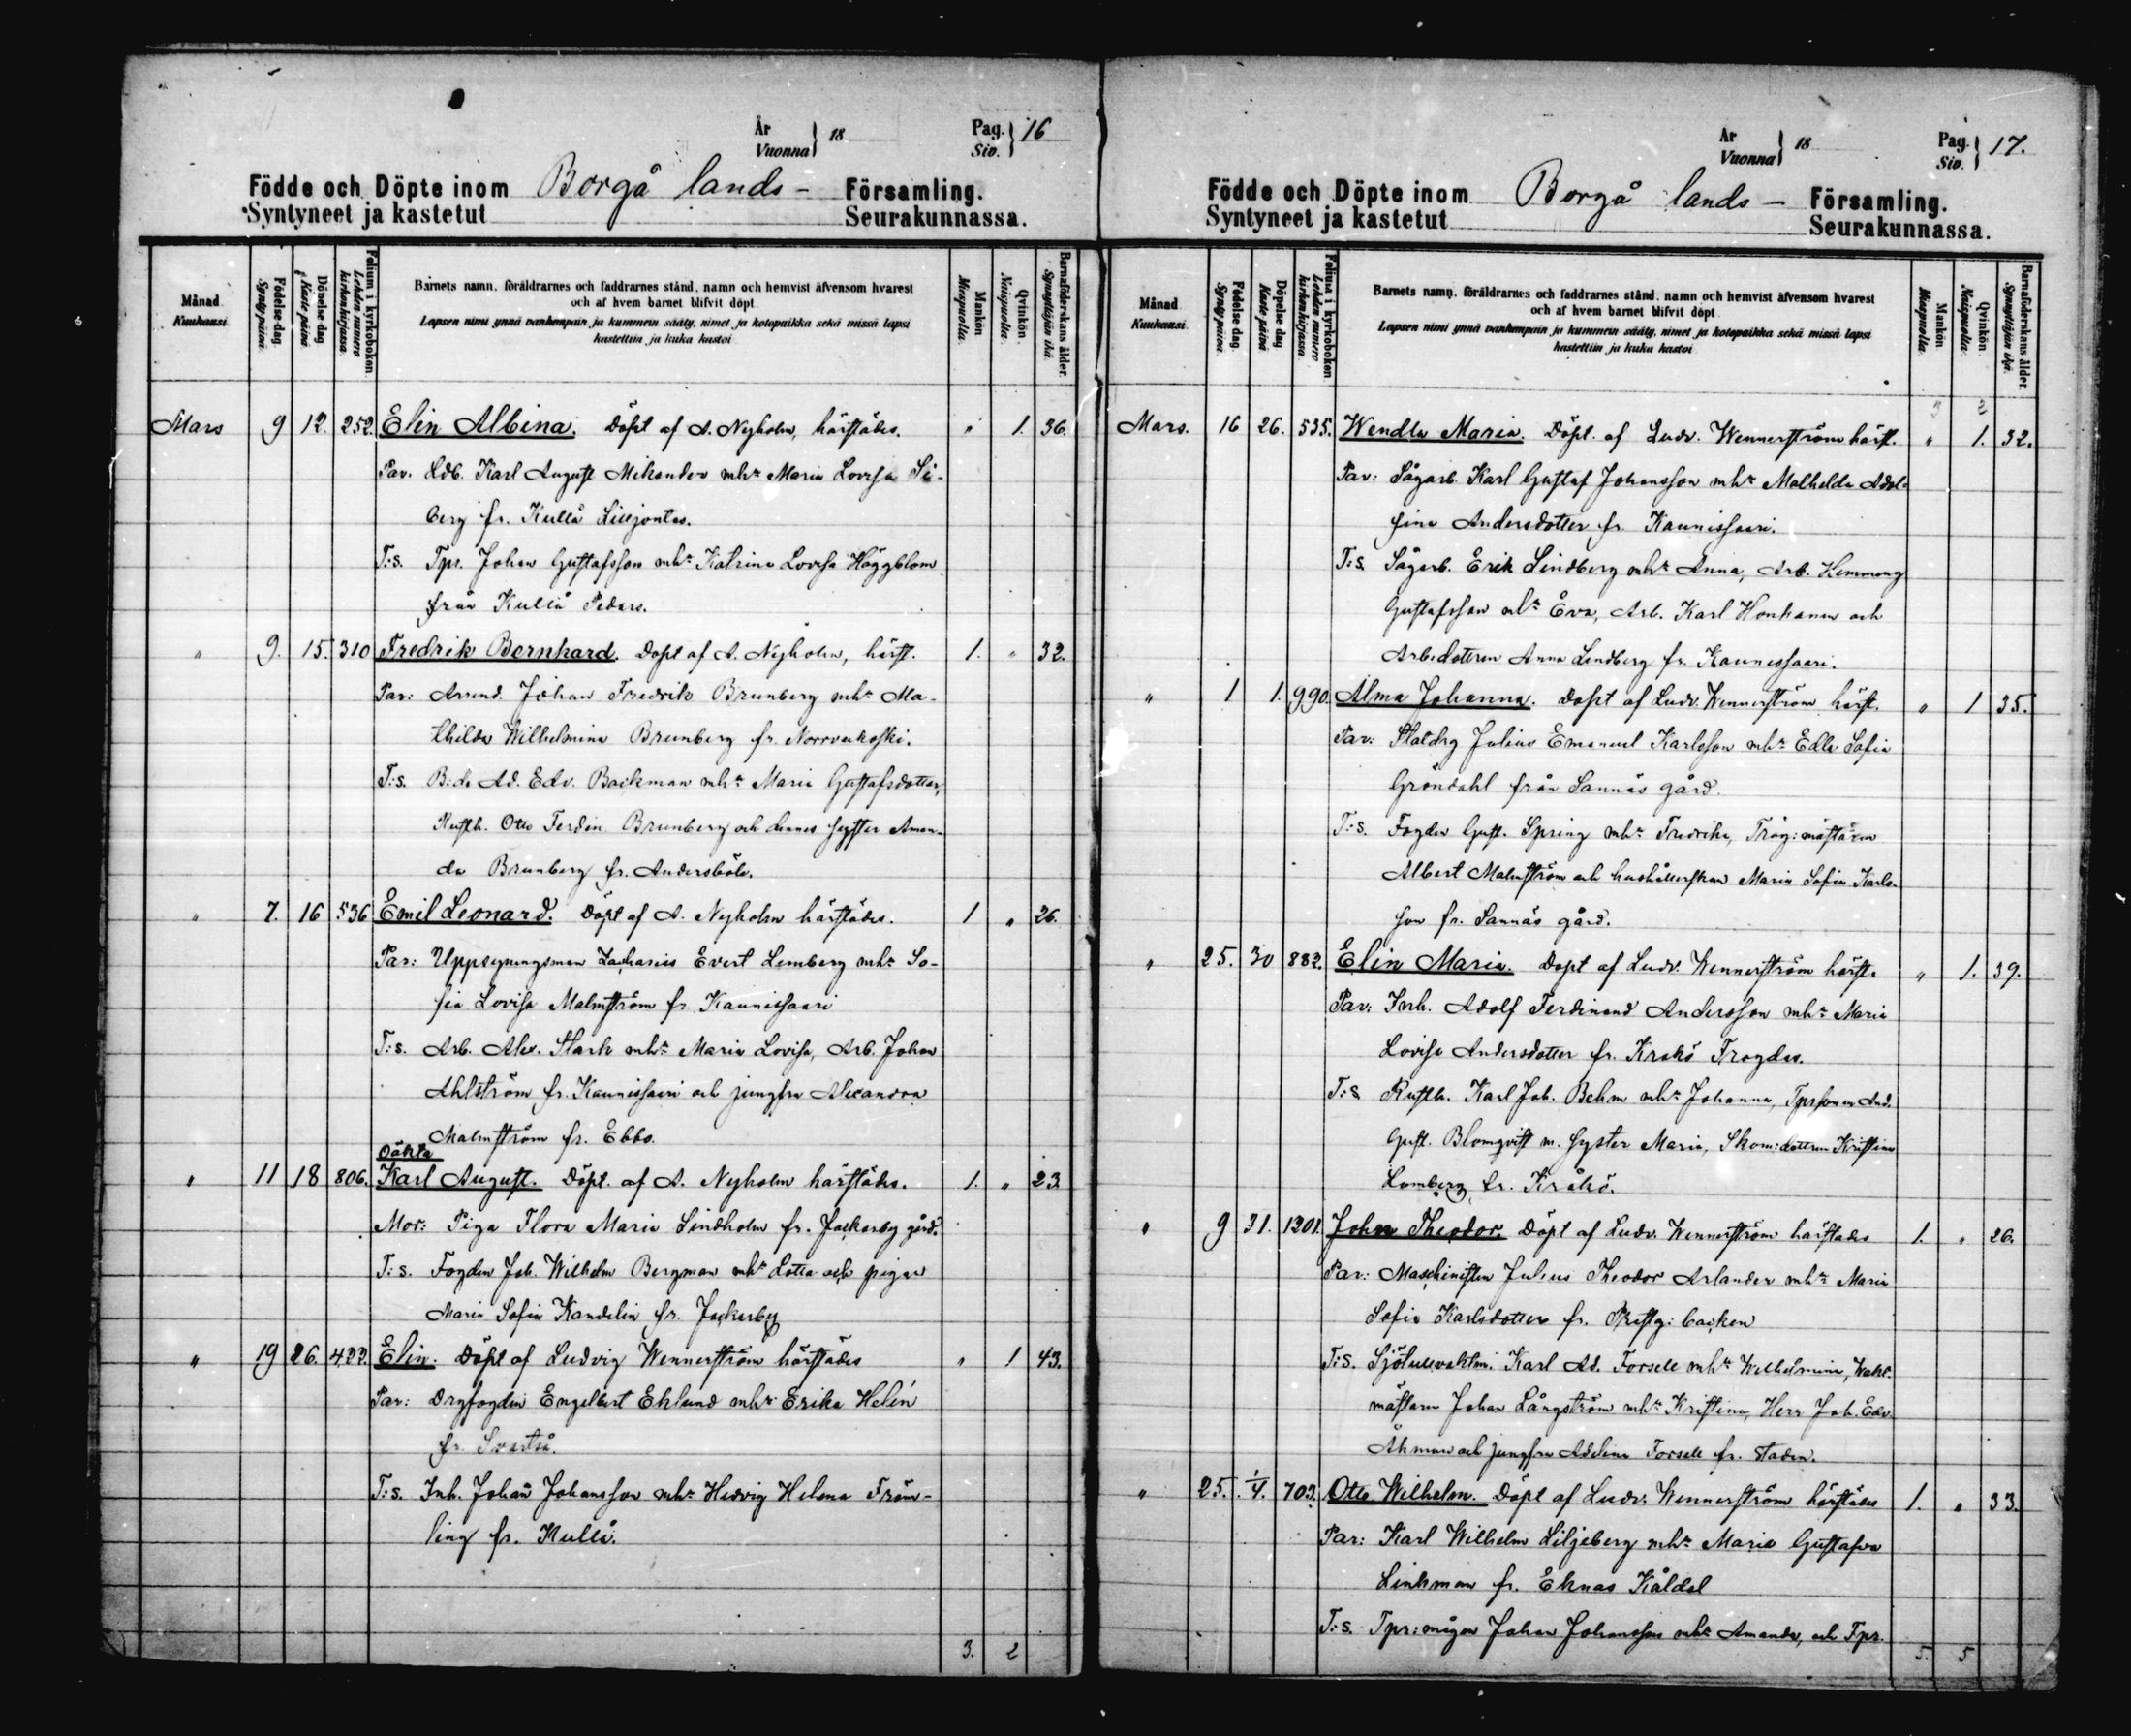 År
Vuonna } 18
Pag.
Siv. } 16
Födde och Döpte inom Borgå lands- Församling.
Syntyneet ja kastetut Seurakunnassa.
Månad
Kuukausi
Födelse dag.
Synty päivä.
Döpelse dag
Kaste päivä
Folium i kyrkoboken
Lehden numero kirkonkirjassa
Barnets namn, föräldrarnes och faddrarnes stånd, namn och hemvist äfvensom hvarest
och af hvem barnet blifvit döpt
Lapsen nimi ynnä vanhempain ja kummein sääty, nimet ja kotopaikka sekä missä lapsi
kastettiin ja kuka kastoi
Mankön
Miespuolta.
Qvinkön.
Naispuolta.
Barnaföderskans ålder.
Synnyttäjän ikä.
Mars 9 12. 252. Elin Albina. Döpt af A. Nyholm, härstädes. " 1. 36.
Par. Ldb. Karl August Mikander mhr Maria Lovisa
berg fr. Kullå Lilljontas.
T:s. Tpr. Johan Gustafsson mhr Katrina Lovisa Häggblom
från Kullå Peders.
" 9. 15. 310 Fredrik Bernhard. Döpt af A. Nyholm, härst. 1. " 32.
Par: Arrend. Johan Fredrik Brunberg mhr Ma-
thilda Wilhelmina Brunberg fr. Norrveckoski.
T:s. B:de Ad. Edv. Backman mhr Maria Gustafsdotter,
Rusth. Otto Ferdin. Brunberg och dennes syster Aman-
da Brunberg fr. Andersböle.
" 7. 16 536 Emil Leonard. Döpt af A. Nyholm härstädes. 1 " 26.
Par: Uppsyningsman Zacharias Evert Lemberg mhr So-
fia Lovisa Malmström fr. Kaunissaari
T:s. Arb. Alex. Stark mhr Maria Lovisa, Arb. Johan
Ahlström fr. Kaunissaari och jungfru Alexandra
Malmström fr. Ebbo.
Oäkta
" 11 18 806. Karl August. Döpt af A. Nyholm härstädes. 1. " 23
Mor: Piga Flora Maria Lindholm fr. Jackarby gård.
T:s. Fogden Joh. Wilhelm Bergman mhr Lotta och pigan
Maria Sofia Kandelin fr. Jackarby
" 19 26. 422. Elin. Döpt af Ludvig Wennerström härstädes " 1 43.
Par: Drgfogden Engelbert Eklund mhr Erika Helén
fr. Svartså.
T:s. Inh. Johan Johansson mhr Hedvig Helena Fröm-
ling fr. Kullå.
3. 2
År
Vuonna } 18
Pag.
Siv. } 17.
Födde och Döpte inom Borgå lands- Församling.
Syntyneet ja kastetut Seurakunnassa.
Månad
Kuukausi
Födelse dag.
Synty päivä.
Döpelse dag
Kaste päivä
Folium i kyrkoboken
Lehden numero kirkonkirjassa
Barnets namn, föräldrarnes och faddrarnes stånd, namn och hemvist äfvensom hvarest
och af hvem barnet blifvit döpt
Lapsen nimi ynnä vanhempain ja kummein sääty, nimet ja kotopaikka sekä missä lapsi
kastettiin ja kuka kastoi
Mankön
Miespuolta.
Qvinkön.
Naispuolta.
Barnaföderskans ålder.
Synnyttäjän ikä.
3 2
Mars. 16 26. 535. Wendla Maria. Döpt af Ludv. Wennerström härst. " 1. 32.
Par: Sågarb. Karl Gustaf Johansson mhr Mathilda Adol-
fina Andersdotter fr. Kaunissaari.
T:s. Sågarb. Erik Lindberg mhr Anna, Arb. Hemming
Gustafsson mhr Eva, Arb. Karl Honkanen och
Arb:dottren Anna Lindberg fr. Kaunissaari.
" 1 1. 990. Alma Johanna. Döpt af Ludv. Wennerström härst. " 1 35.
Par: Statdrg Julius Emanuel Karlsson mhr Edla Sofia
Gröndahl från Sannäs gård.
T:s. Fogden Gust. Spring mhr Fredrika, Träg:mästaren
Albert Malmström och hushållerskan Maria Sofia Karls-
son fr. Sannäs gård.
" 25. 30 882. Elin Maria. Döpt af Ludv. Wennerström härst. " 1. 39.
Par: Inh. Adolf Ferdinand Andersson mhr Maria
Lovisa Andersdotter fr. Kråkö Frogdas.
T:s Rusth. Karl Joh. Behm mhr Johanna, Tprsonen And.
Gust. Blomqvist m. syster Maria, Skom:dottren Kristina
Lomberg fr. Kråkö.
" 9 31. 1301. John Theodor. Döpt af Ludv. Wennerström härstädes 1. " 26.
Par: Maschinisten Julius Theodor Arlander mhr Maria
Sofia Karlsdotter fr. Prestg:backen
T:s. Sjötullvaktm. Karl Ad. Forsell mhr Wilhelmina, Wakt-
mästaren Johan Långström mhr Kristina, Herr Joh. Edv.
Åhman och jungfru Adelina Forsell fr. staden.
" 25. 1/4. 703. Otto Wilhelm. Döpt af Ludv. Wennerström härstädes 1. " 33.
Par: Karl Wilhelm Liljeberg mhr Maria Gustafva
Linkman fr. Eknäs Kåldal
T:s. Tpr:mågen Johan Johansson mhr Amanda, och Tpr.
5. 5